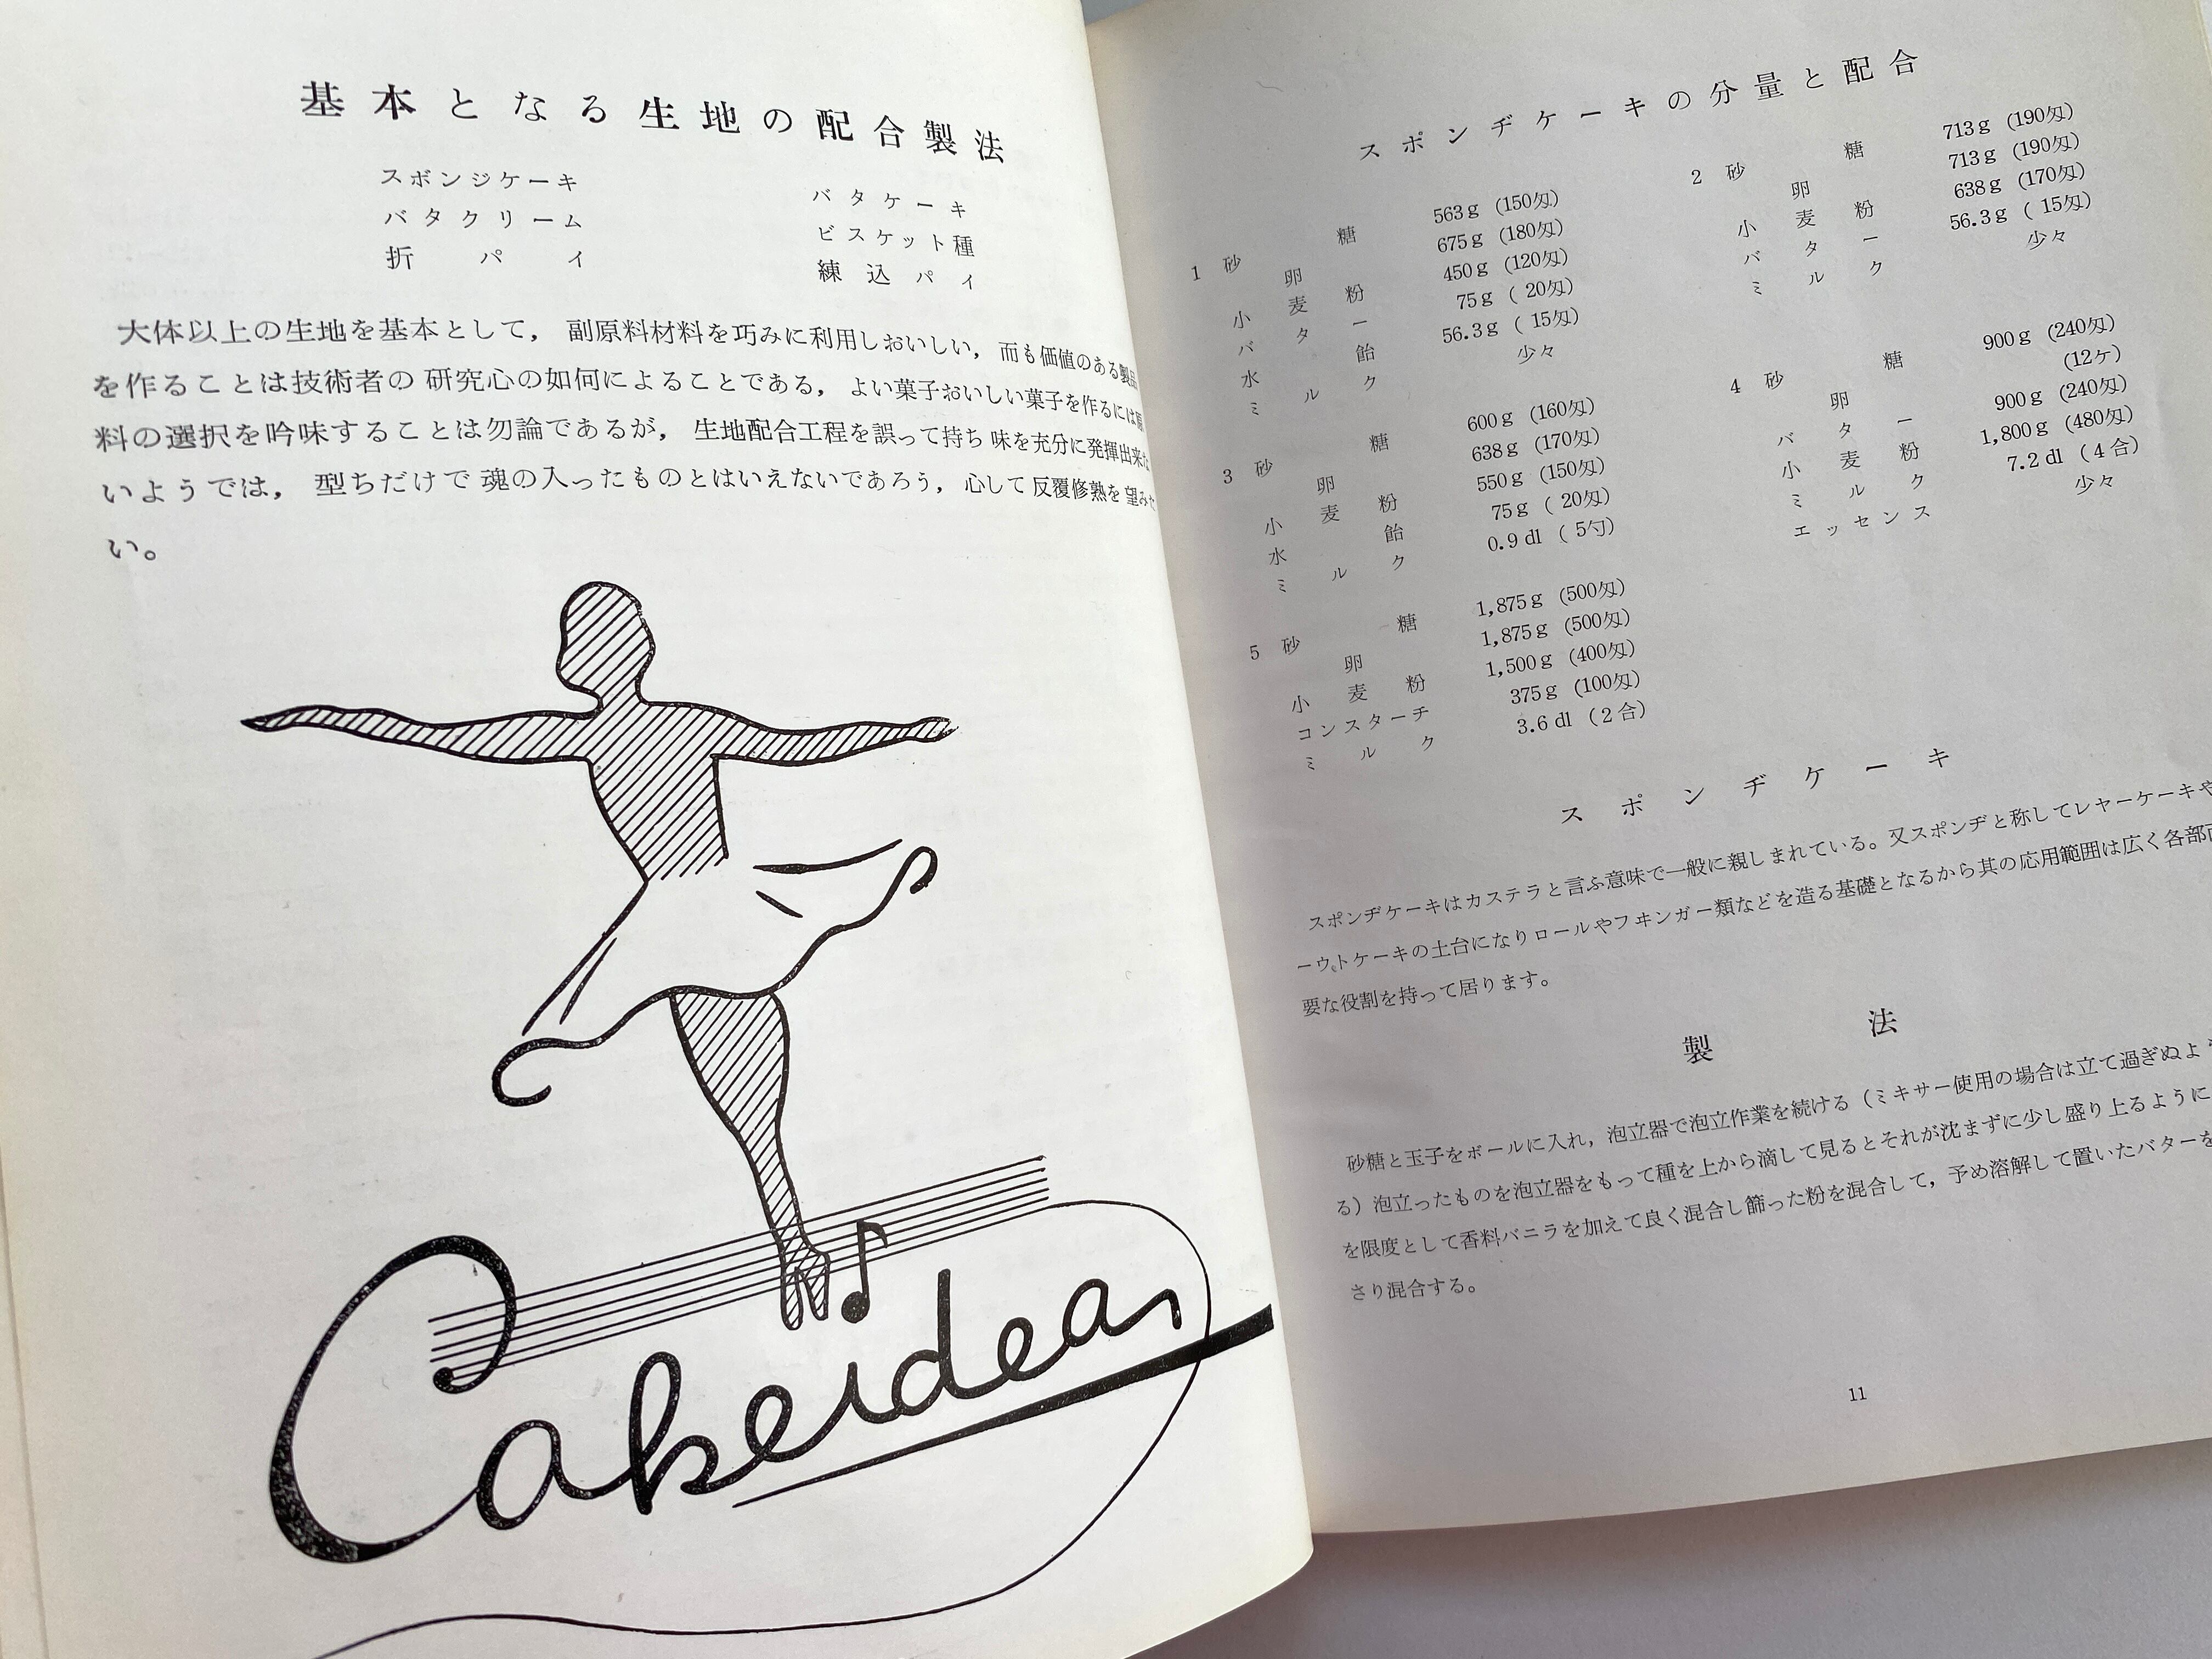 基本となる生地の配合製法
スポンジケーキ バタケーキ
バタクリーム ビスケット種
折パイ 練込パイ
大体以上の生地を基本として，副原料材料を巧みに利用しおいしい，而も価値のある製品
を作ることは技術者の研究心の如何によることである，よい菓子おいしい菓子を作るには原
料の選択を吟味することは勿論であるが，生地配合工程を誤って持ち味を充分に発揮出来な
いようでは，型ちだけで魂の入ったものとはいえないであろう，心して反覆修熟を望みた
い。
Cakeideas
スポンヂケーキの分量と配合
1 砂糖 563g (150匁)
卵 675g (180匁)
小麦粉 450g (120匁)
バター 75g ( 20匁)
水飴 56.3g ( 15匁)
ミルク 少々
2 砂糖 713g (190匁)
卵 713g (190匁)
小麦粉 638g (170匁)
バター 56.3g ( 15匁)
ミルク 少々
3 砂糖 600g (160匁)
卵 638g (170匁)
小麦粉 550g (150匁)
水飴 75g ( 20匁)
ミルク 0.9 dl ( 5勺)
4 砂糖 900g (240匁)
卵 (12ケ)
バター 900g (240匁)
小麦粉 1,800g (480匁)
ミルク 7.2 dl ( 4合)
エッセンス 少々
5 砂糖 1,875g (500匁)
卵 1,875g (500匁)
小麦粉 1,500g (400匁)
コンスターチ 375g (100匁)
ミルク 3.6 dl ( 2合)
スポンヂケーキ
スポンヂケーキはカステラと言ふ意味で一般に親しまれている。又スポンヂと称してレヤーケーキや
ーウトケーキの土台になりロールやフヰンガー類などを造る基礎となるから其の応用範囲は広く各部
要な役割を持って居ります。
製法
砂糖と玉子をボールに入れ，泡立器で泡立作業を続ける（ミキサー使用の場合は立て過ぎぬよう
る）泡立ったものを泡立器をもって種を上から滴して見るとそれが沈まずに少し盛り上るように
を限度として香料バニラを加えて良く混合し篩った粉を混合して，予め溶解して置いたバターを
さり混合する。
11